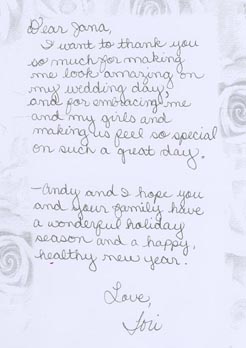 Dear Jana,
I want to thank you
so much for making
me look amazing on
my wedding day,
and for embracing me
and my girls and
making us feel so special
on such a great day.
-Andy and I hope you
and your family have
a wonderful holiday
season and a happy,
healthy new year.
Love,
Tori